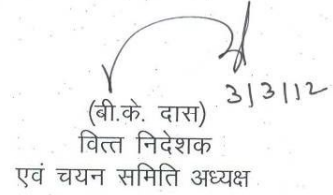 3/3/12
(बी.के. दास)
वित्त निदेशक
एवं चयन समिति अध्यक्ष